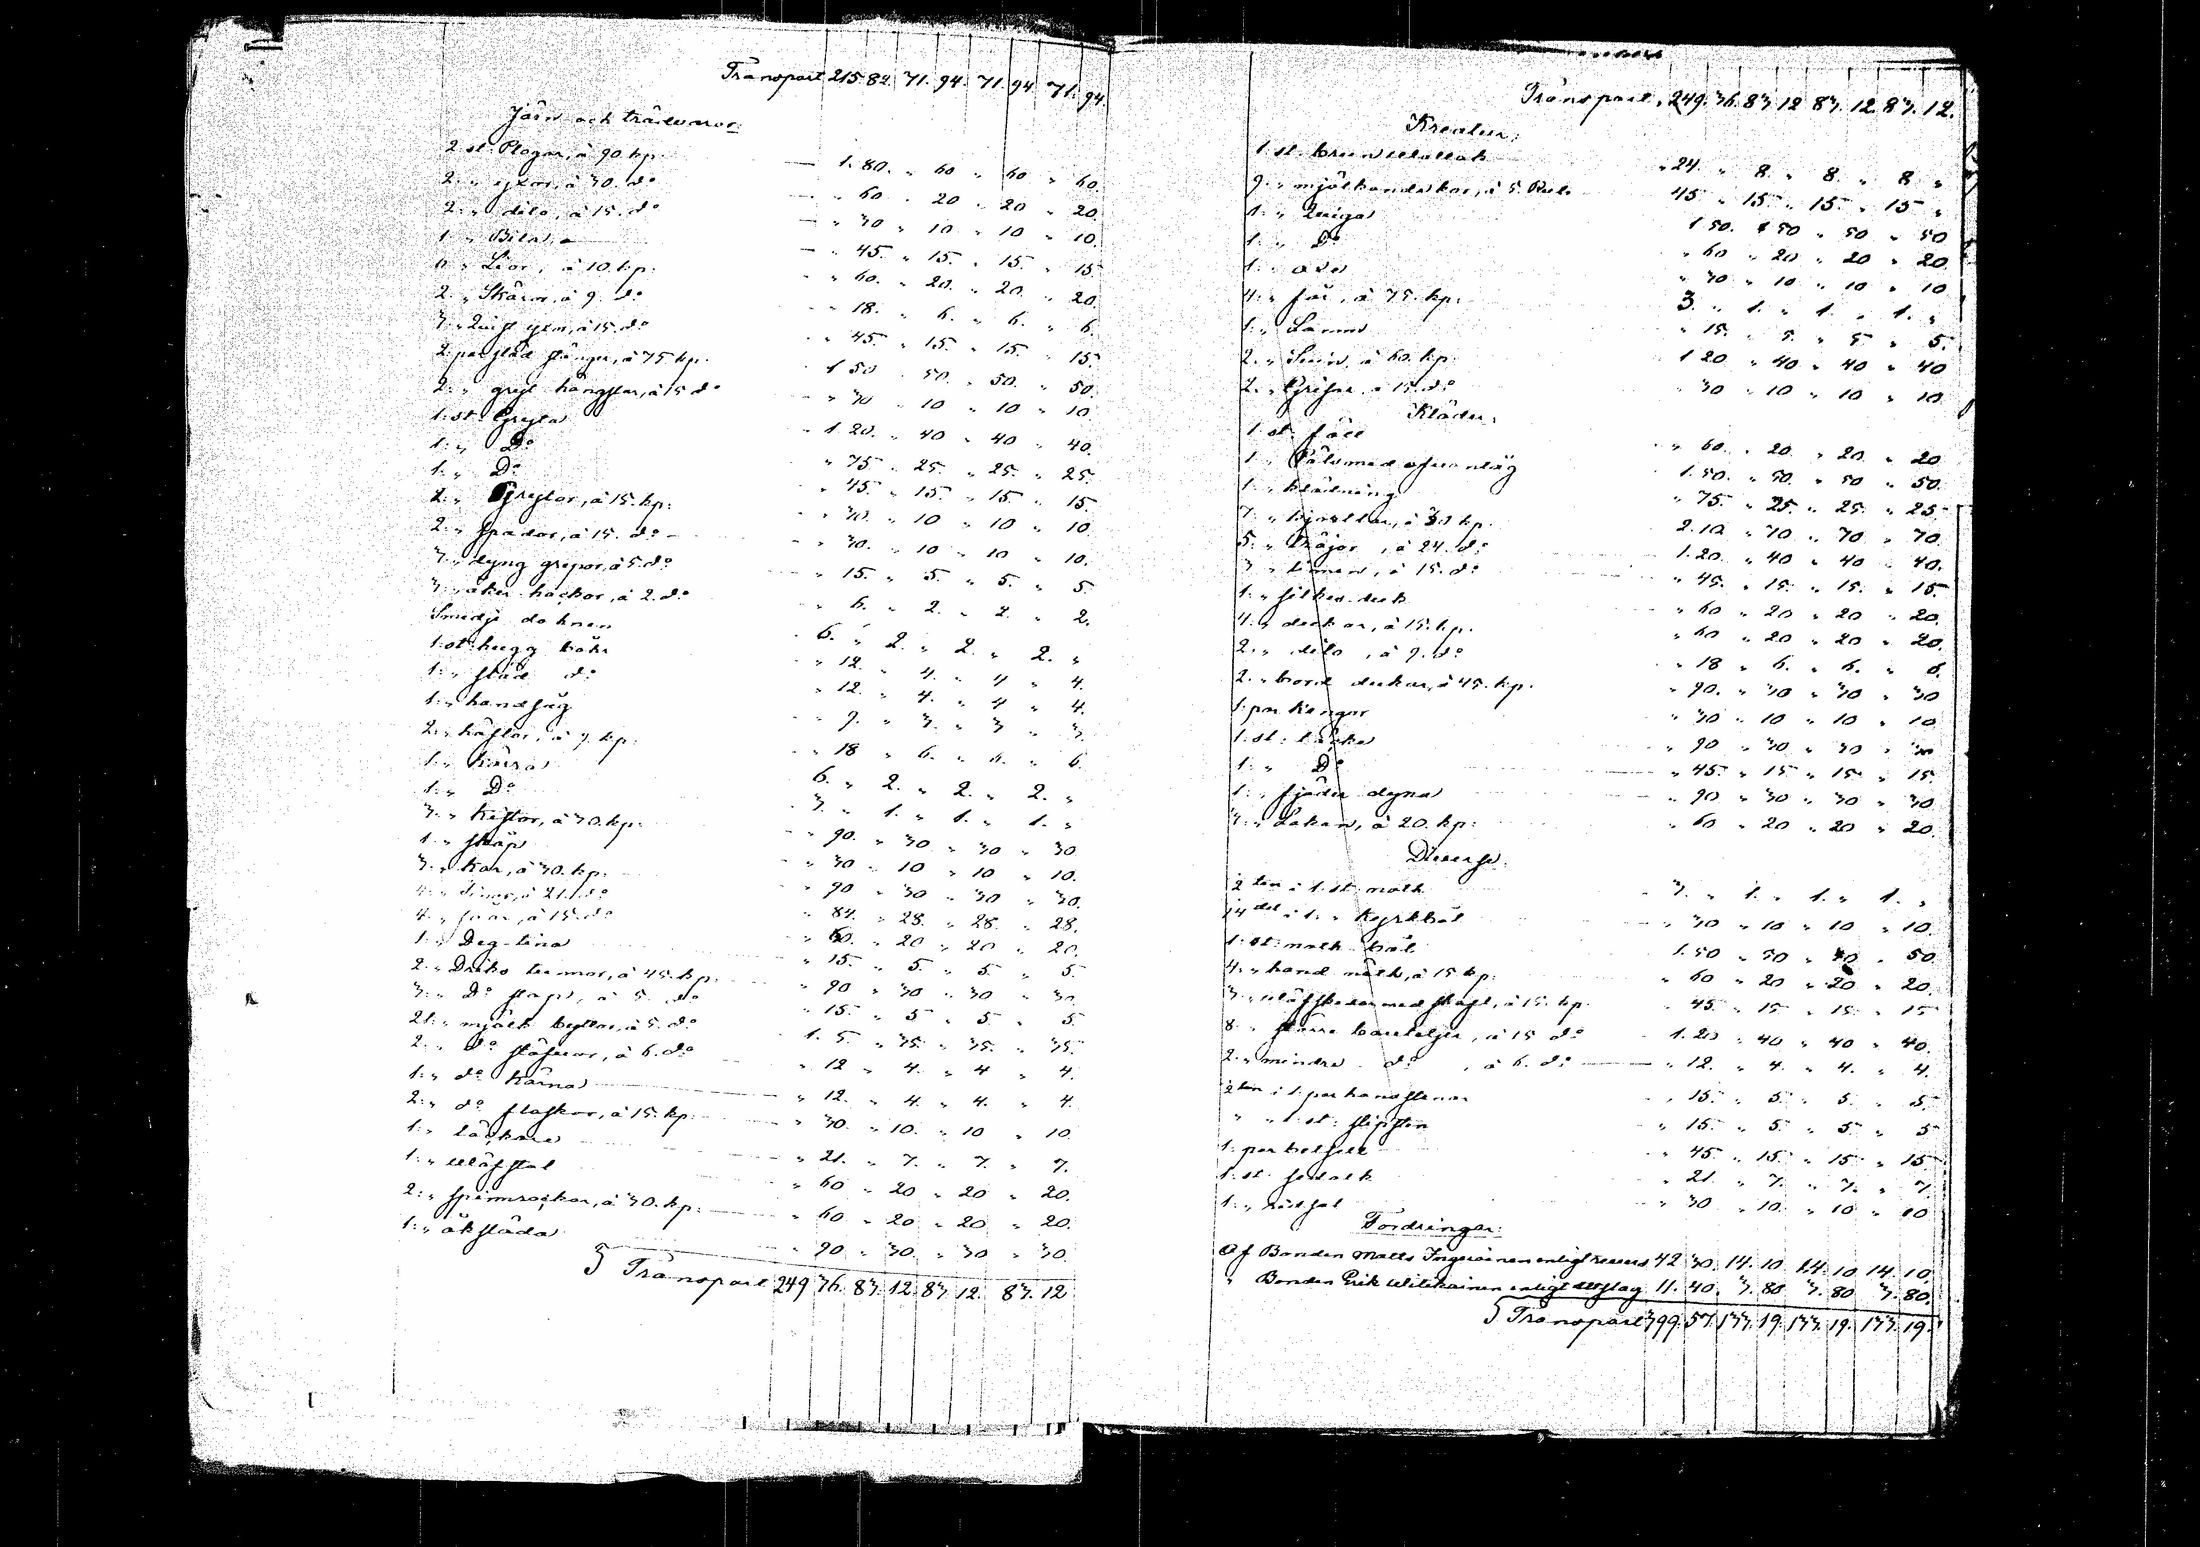 Transport 215. 82. 71. 94. 71. 94. 71. 94.
Järn och trädvaror:
2. st. Plogar, à 90. kp. — 1. 80. " 60 " 60 " 60.
2. " yxor, à 30. do — " 60 " 20 " 20 " 20.
2. " dito, à 15. do — " 30 " 10 " 10 " 10.
1. " Bila — " 45. " 15. " 15. " 15
6. " Liar, à 10. kp. " 60. " 20. " 20. " 20
2. " Skäror, à 9. do " 18. " 6. " 6. " 6.
3. " yxor, à 15. do " 45. " 15. " 15. " 15.
2. par stänger, à 75 kp. 1 50 " 50. " 50. " 50.
2. " gryt hängslar, à 15 do " 30 " 10 " 10 " 10.
1. st. Gryta 1 20. " 40 " 40 " 40.
1. " Do " 75 " 25. " 25. " 25.
1. " Do " 45. " 15. " 15. " 15.
2. " Grytor, à 15. kp. " 30. " 10 " 10 " 10.
2. " spador, à 15. do — " 30. " 10. " 10 " 10.
3. " dyng grepor, à 5. do " 15. " 5. " 5. " 5
3. " åker hackor, à 2. do " 6. " 2. " 2. " 2.
Smedje 6. " 2. " 2. " 2. "
1. st. hugg " 12. " 4. " 4 " 4.
1. " städ do " 12. " 4. " 4 " 4.
1. " handsåg " 9. " 3. " 3 " 3.
2. " à 9. kp. " 18 " 6. " 6. " 6
1. " Kärra 6. " 2. " 2. " 2. "
1. " Do 3. " 1. " 1. " 1. "
3. " Kistor, à 30. kp. " 90. " 30 " 30 " 30
1. " skåp " 30 " 10 " 10 " 10.
3. " Kar, à 30. kp. " 90 " 30 " 30 " 30.
4. " Tinor, à 21. do " 84. " 28. " 28. " 28.
4. " à 15. do " 60. " 20 " 20 " 20.
1. " Deg-tina " 15. " 5. " 5. " 5.
2. " Dricks tunnor, à 45. kp. " 90 " 30 " 30 " 30.
3. " Do à 5. do " 15. " 5 " 5. " 5.
21. " mjölk byttor, à 5. do 1. 5. " 35. " 35. " 35.
2. " do stäfvor, à 6. do " 12 " 4. " 4 " 4.
1. " do Kärna " 12. " 4. " 4. " 4.
2. " do flaskor, à 15. kp. " 30. " 10. " 10 " 10
1. " " 21. " 7. " 7. " 7.
1. " Wäfstol " 60 " 20 " 20 " 20.
2. " spinnrockar, à 30. kp. " 60 " 20 " 20 " 20.
1. " åkslåda " 90 " 30. " 30 " 30.
Transport 249 36. 83. 12. 83. 12. 83. 12
Transport, 249. 36. 83. 12 83. 12. 83. 12.
Kreatur:
1. st. brun wallak " 24. " 8. " 8. " 8 "
9. " mjölkande kor, à 5. Rub. 45 " 15. " 15. " 15 "
1. " Quiga 1 50. " 50 " 50 " 50
1. " Do " 60 " 20 " 20 " 20.
1. " " 30 " 10 " 10 " 10
4. " får, à 75. kp. 3. " 1. " 1. " 1. "
1. " Lamm " 15. " 5. " 5 " 5.
2. " Svin, à 60. kp. 1 20 " 40 " 40 " 40
2. " Grisar à 15. do " 30 " 10 " 10 " 10.
Kläder:
1. st. fäll " 60. " 20. " 20. " 20
1. " Päls med 1. 50. " 50. " 50 " 50.
1. " Klädning " 75. " 25. " 25. " 25
7. " kjortlar, à 30 kp. 2. 10 " 70 " 70 " 70.
5. " tröjor, à 24. do 1. 20. " 40 " 40 " 40.
3. " à 15. do " 45. " 15. " 15. " 15
1. " silkes duk " 60 " 20 " 20 " 20.
4. " dukar, à 15. kp. " 60 " 20 " 20 " 20.
2. " dito, à 9. do " 18 " 6. " 6. " 6.
2. " bord dukar, à 45. kp. " 90. " 30 " 30 " 30
1. par Kängor " 30 " 10 " 10 " 10
1. st. täcke " 90 " 30 " 30 " 30
1. " Do " 45. " 15 " 15 " 15.
1. " fjäder dyna " 90 " 30 " 30 " 30
3. " Lakan, à 20. kp. " 60 " 20 " 20 " 20.
Diverse:
1. st. notk 3. " 1. " 1. " 1. "
Kyrkbåt " 30 " 10 " 10 " 10.
1. st. notk båt 1. 50 " 50 " 50 " 50.
4. " hand nätk, à 15 kp. " 60 " 20 " 20 " 20.
3. " wäfskedar med skaft, à 15. kp. " 45. " 15 " 15 " 15
8. " större bouteljer, à 15 do 1. 20 " 40 " 40 " 40.
2. " mindre do, à 6. do " 12. " 4. " 4. " 4.
1. par " 15. " 5 " 5. " 5.
" 1. st. " 15. " 5. " 5 " 5
1. par " 45 " 15 " 15 " 15
1. st. " 21. " 7. " 7. " 7.
1. " " 30 " 10. " 10 " 10
Fordringar:
Af Bonden Matts Inguainen enligt revers 42 30. 14. 10 14. 10 14. 10.
" Bonden Erik Witikainen enligt utslag 11. 40. 3. 80 3. 80 3. 80.
Transport 399. 57. 133. 19. 133. 19. 133. 19.